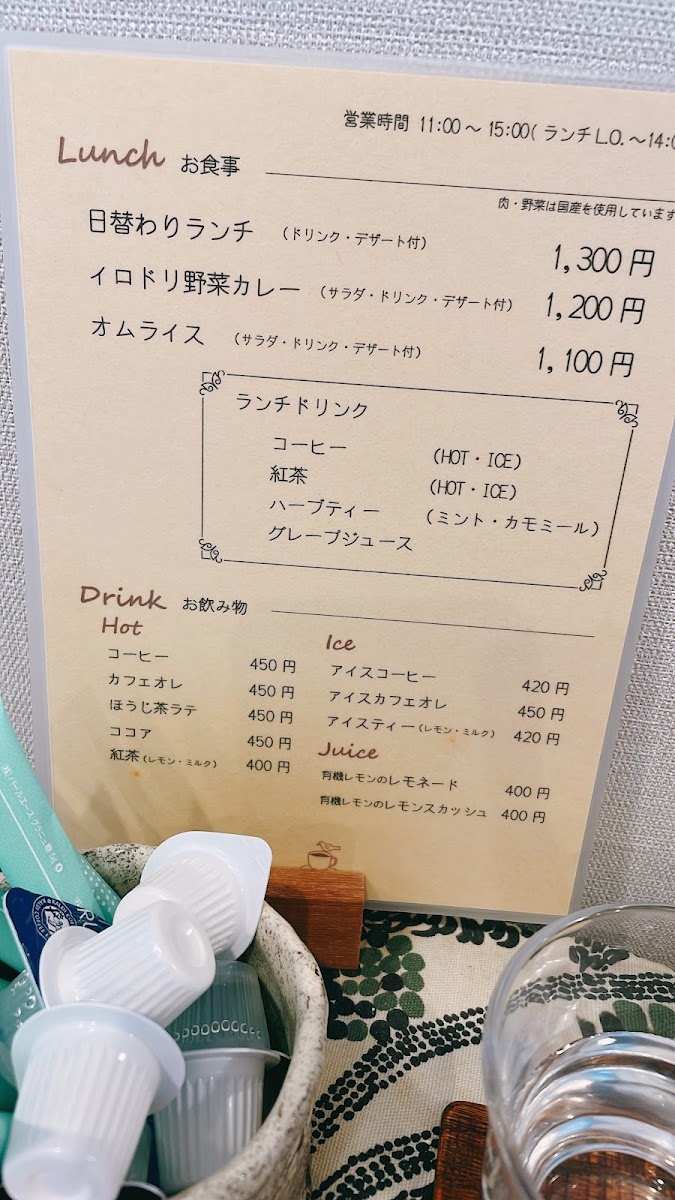 営業時間 11:00～15:00(ランチL.O.～14:0
Lunch お食事
肉・野菜は国産を使用しています
日替わりランチ (ドリンク・デザート付) 1,300円
イロドリ野菜カレー (サラダ・ドリンク・デザート付) 1,200円
オムライス (サラダ・ドリンク・デザート付) 1,100円
ランチドリンク
コーヒー (HOT・ICE)
紅茶 (HOT・ICE)
ハーブティー (ミント・カモミール)
グレープジュース
Drink お飲み物
Hot
コーヒー 450円
カフェオレ 450円
ほうじ茶ラテ 450円
ココア 450円
紅茶(レモン・ミルク) 400円
Ice
アイスコーヒー 420円
アイスカフェオレ 450円
アイスティー(レモン・ミルク) 420円
Juice
有機レモンのレモネード 400円
有機レモンのレモンスカッシュ 400円